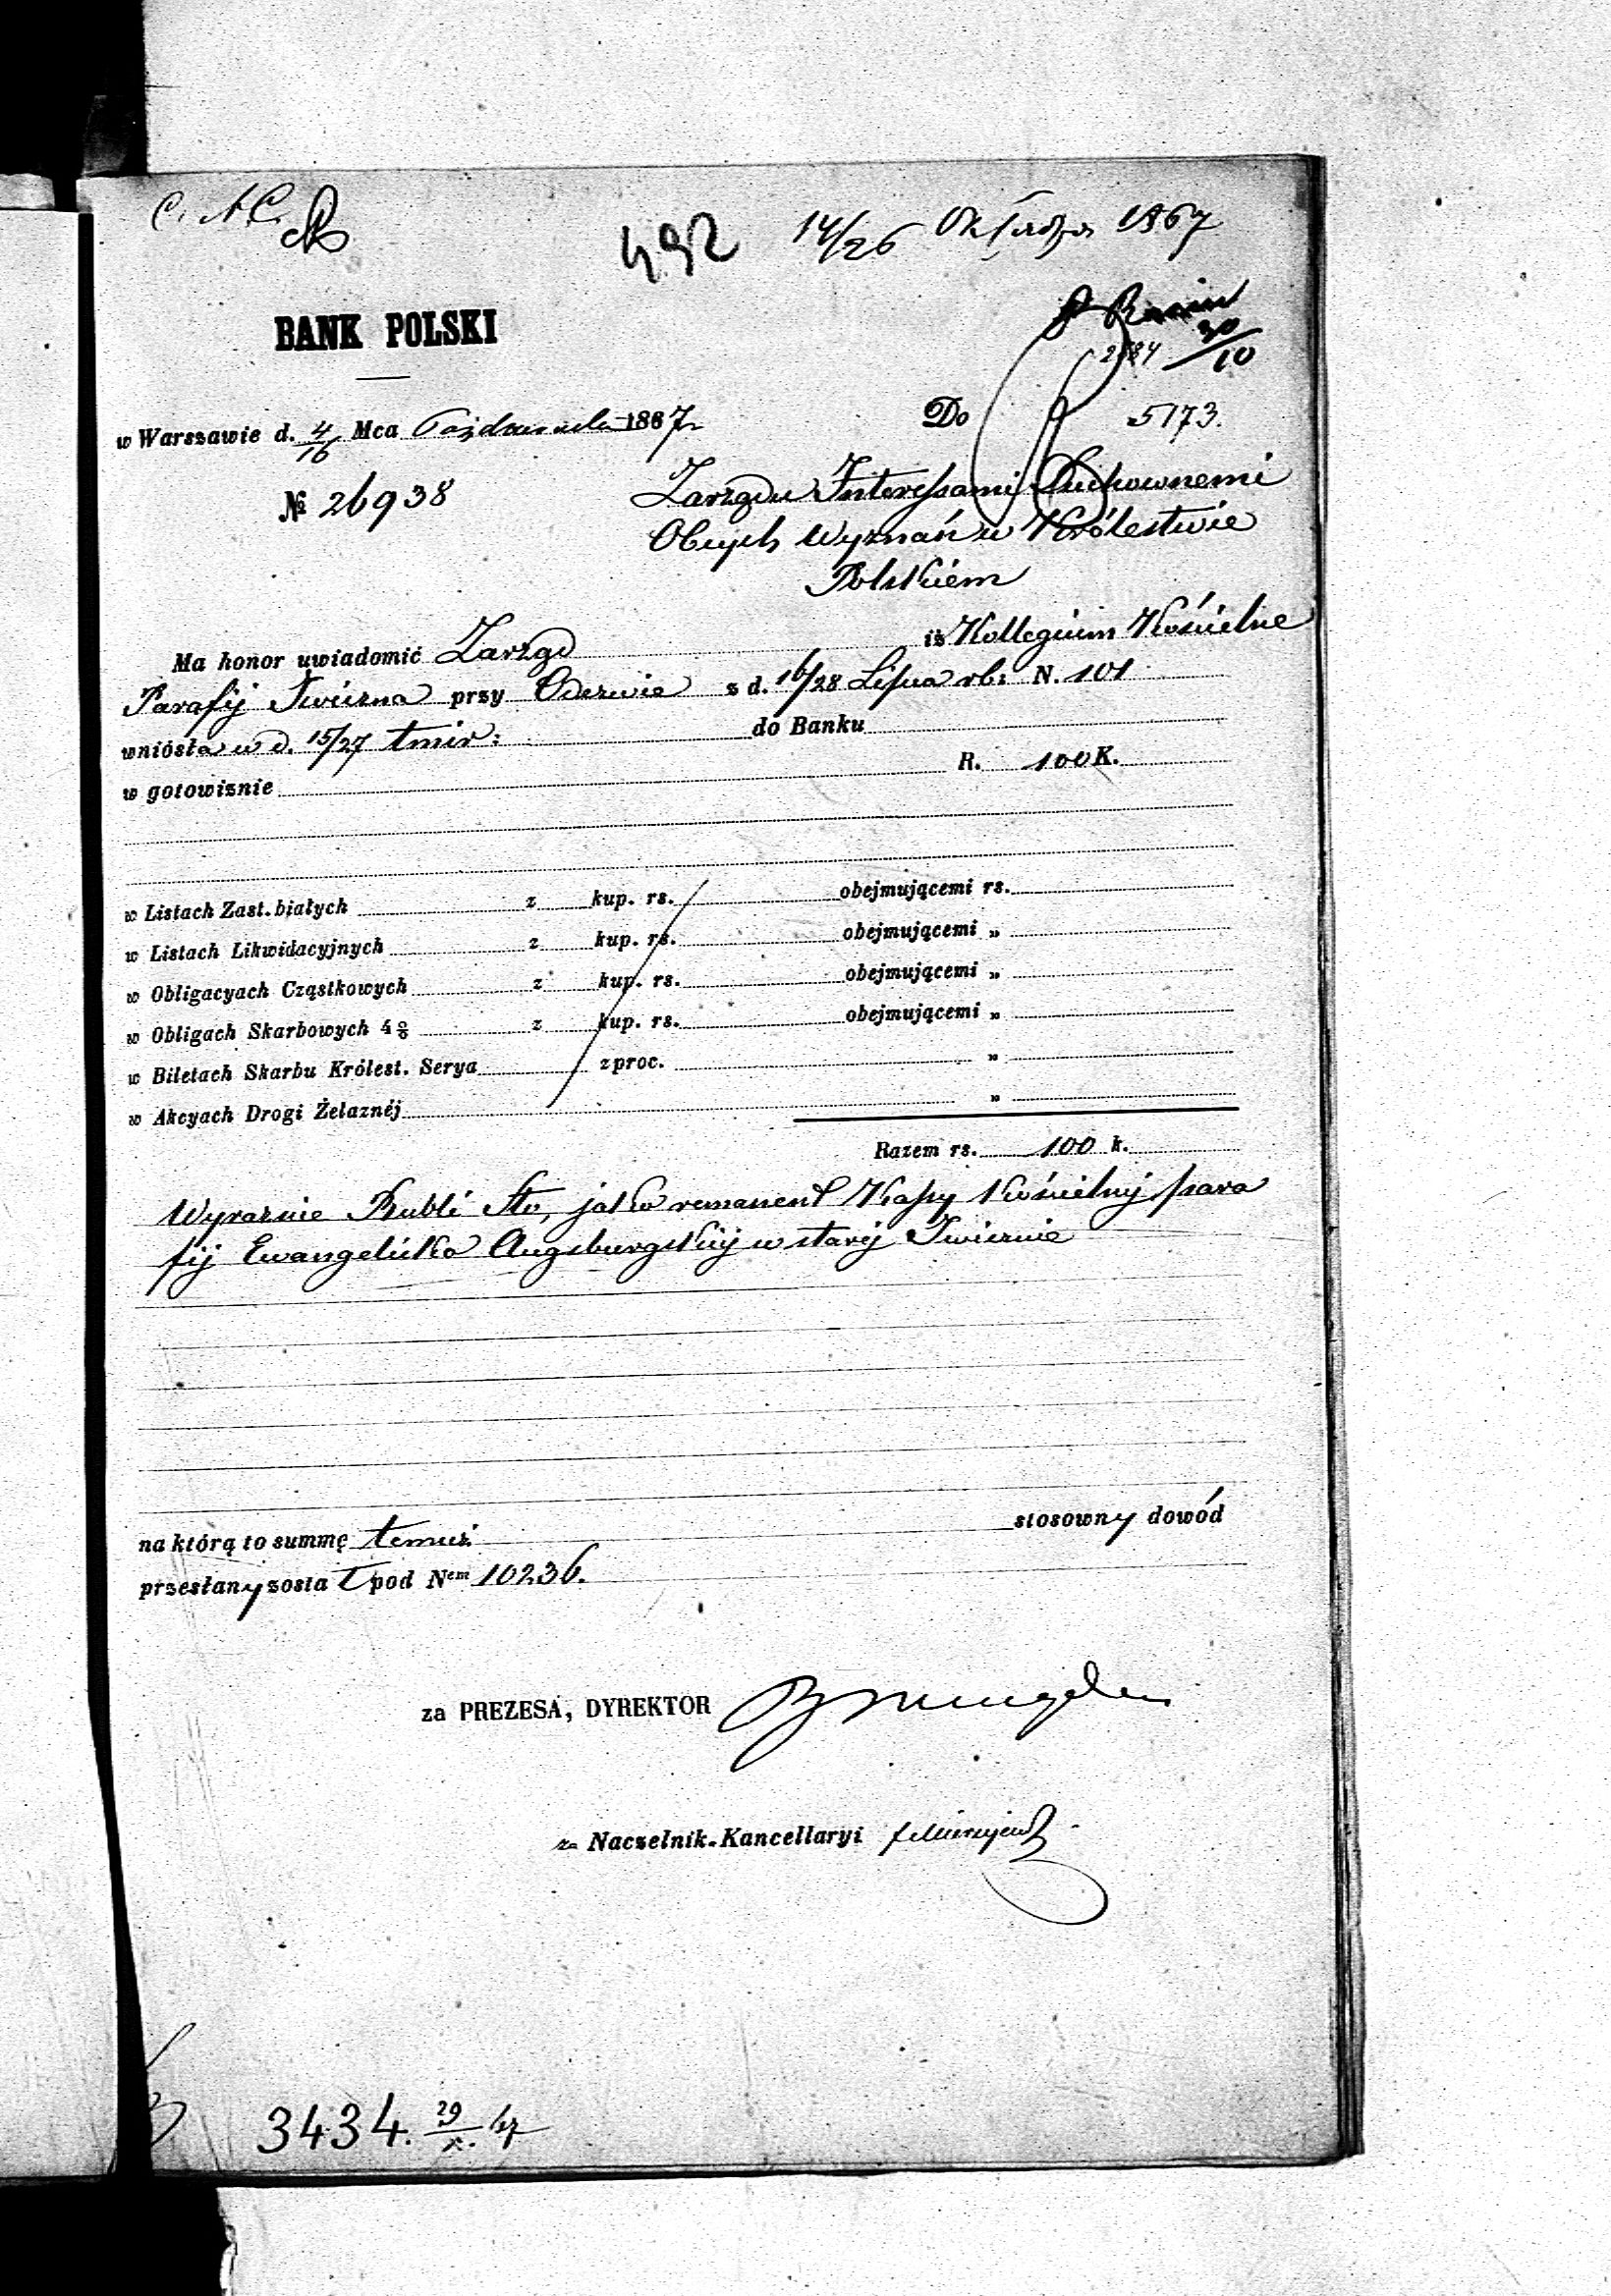 492 14/26 Октября 1867
30/10
BANK POLSKI
2884
w Warszawie d. 4/16 Mca Października 1867 r.
Do 5173.
№ 26938
Zarządu Interessami Duchownemi
Obcych Wyznań w Królestwie
Polskiém
Ma honor uwiadomić Zarząd iż Kollegium Kościelne
Parafij Iwiczna przy z d. 16/28 Lipca rb: N. 101
wniósła w d. 15/27 tmir: do Banku
w gotowiznie R. 100 K.
w Listach Zast. białych z kup. rs. obejmującemi rs.
w Listach Likwidacyjnych z kup. rs. obejmującemi „
w Obligacyach Cząstkowych z kup. rs. obejmującemi „
w Obligach Skarbowych 4 % z kup. rs. obejmującemi „
w Biletach Skarbu Królest. Serya z proc. „
w Akcyach Drogi Żelaznéj „
Razem rs. 100 k.
Wyraznie Rubli Sto, jako remanent Kassy Kościelnéj para
fij Ewangelicko Augsburgskiéj w staréj Iwicznie
na którą to summę temuż stosowny dowód
przesłany został pod Nem 10236.
za PREZESA, DYREKTOR
za Naczelnik-Kancellaryi
3434. 29/X. 67